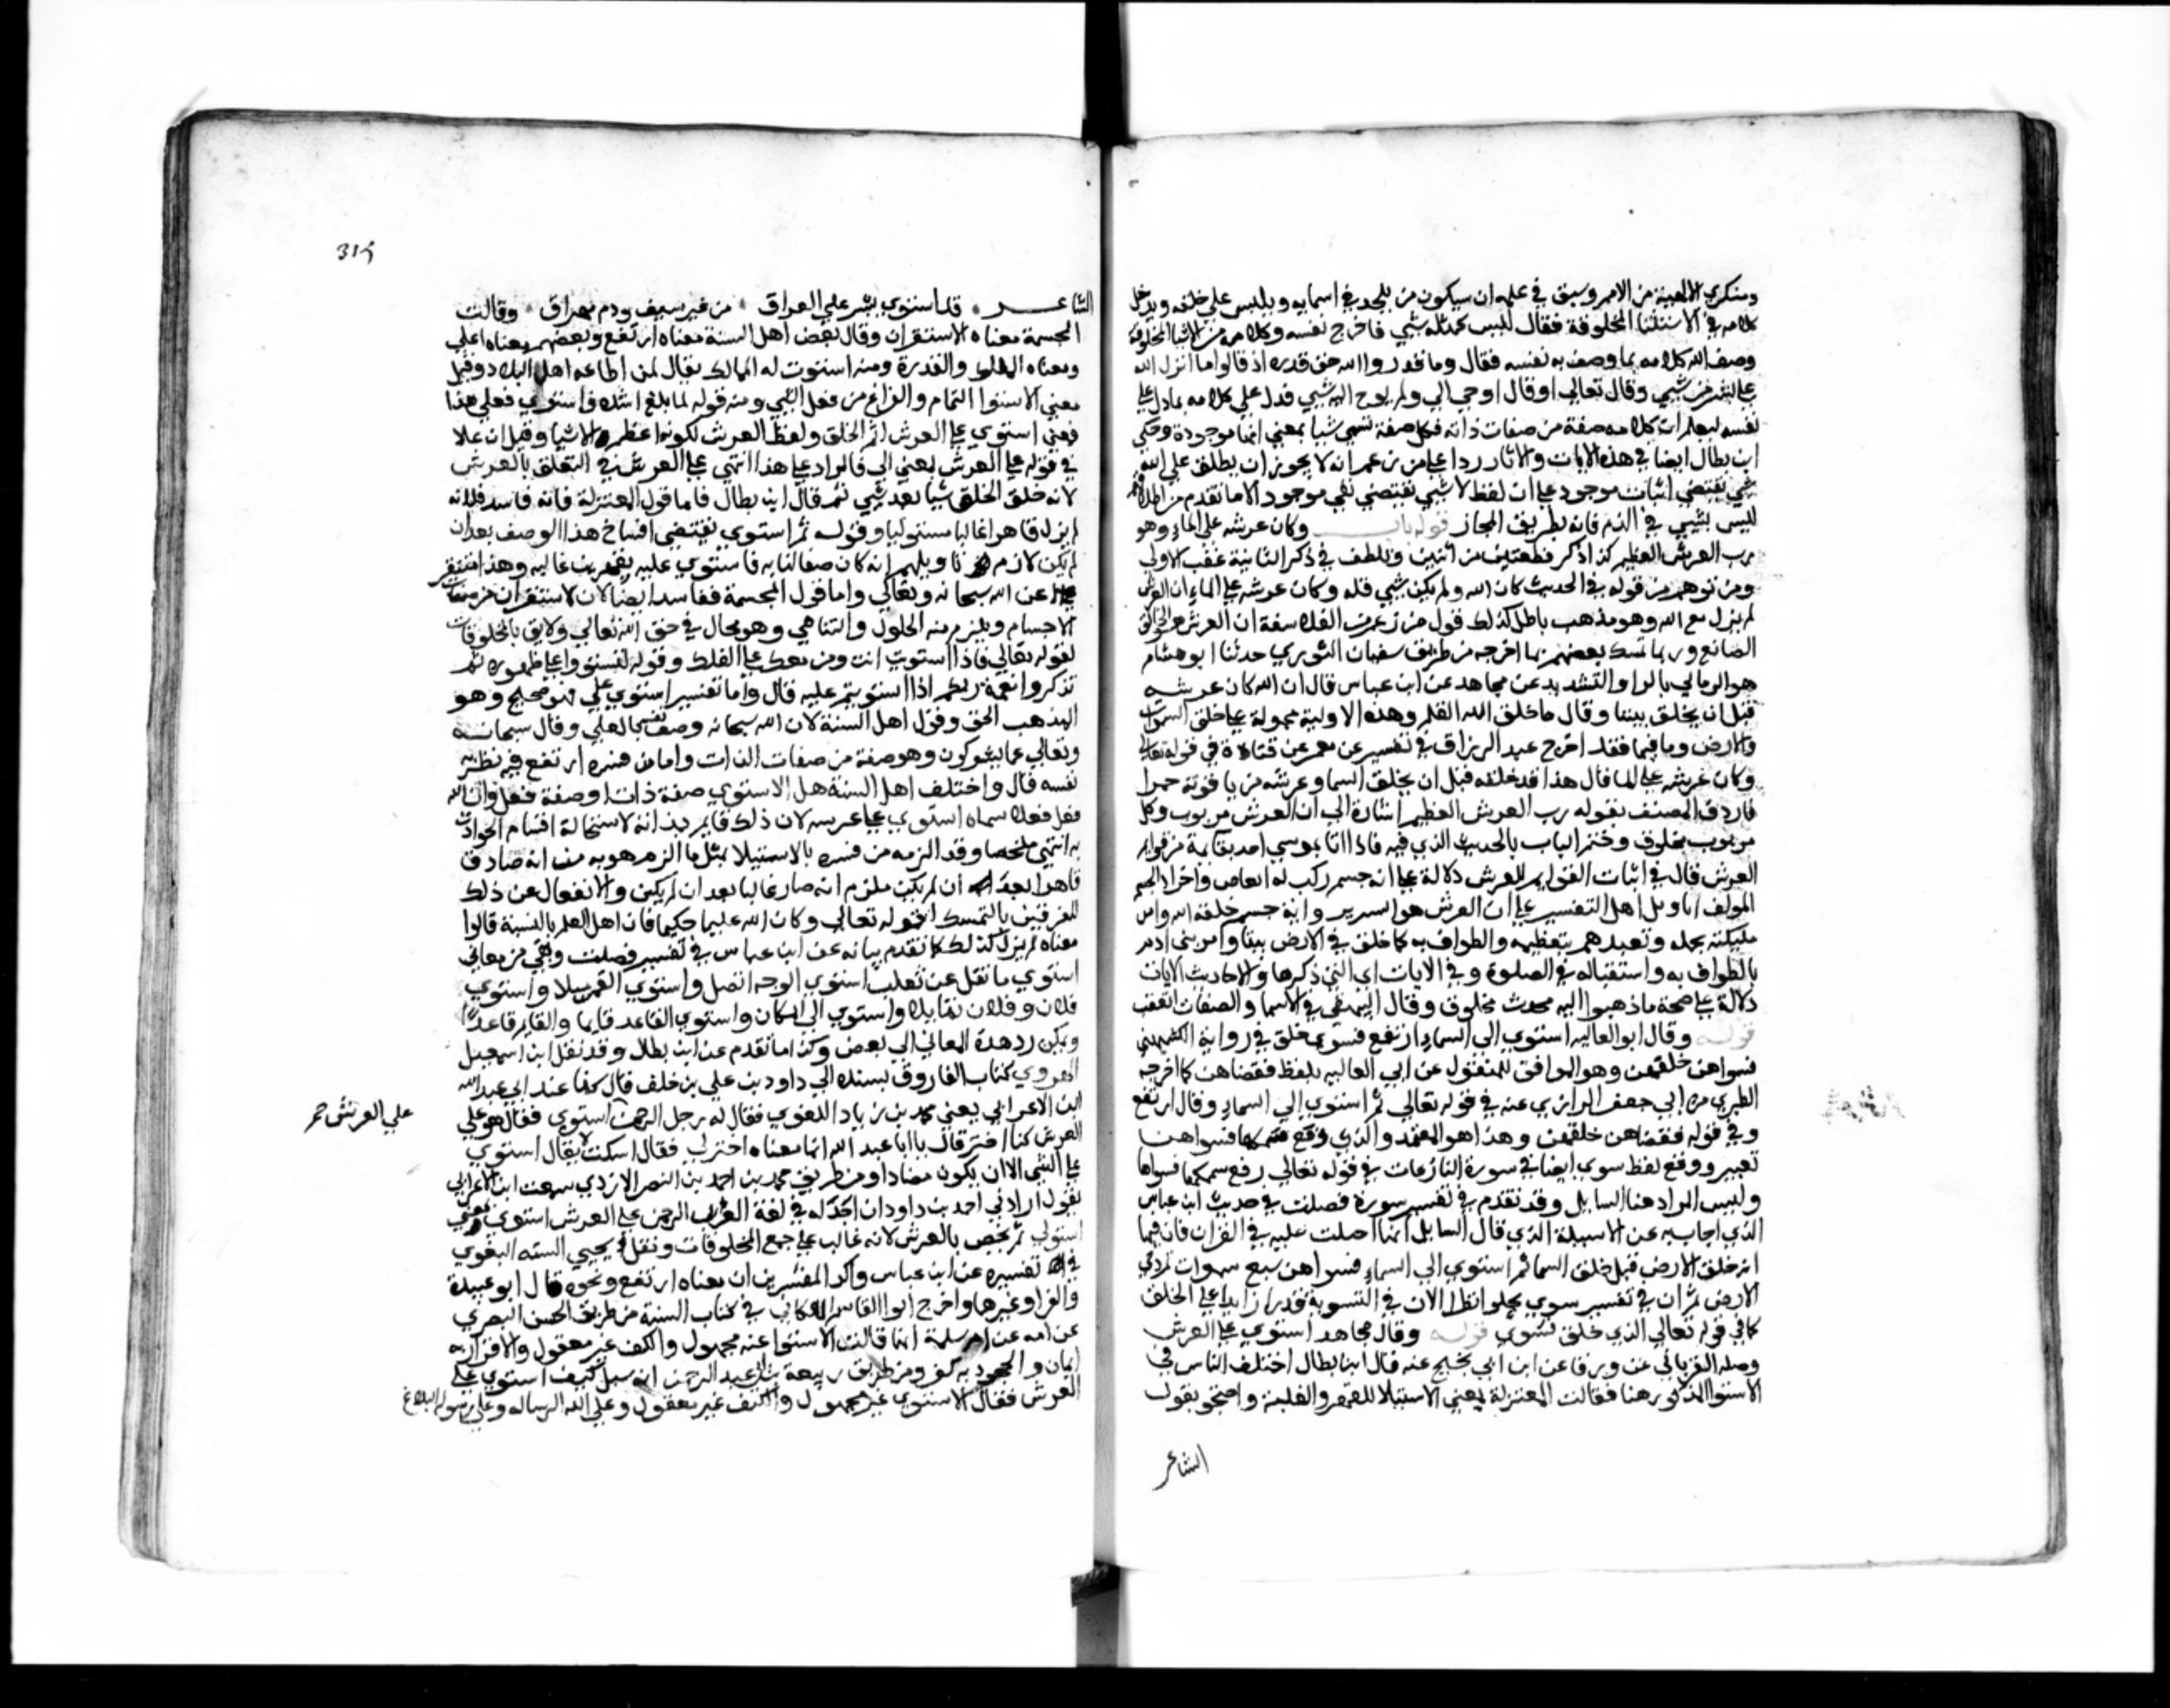 ومنكري الالهية من الامم وسبق في علمه ان سيكون من يلحد في اسمايه ويلبس على خلقه ويدخل
كلامه في الاشيا المخلوقة فقال ليس كمثله شي فاخرج نفسه وكلامه من الاشيا المخلوقة
وصف الله كلامه بما وصف به نفسه فقال وما قدروا الله حق قدره اذ قالوا ما انزل الله
على بشر من شي وقال تعالى او قال اوحي الي ولم يوح اليه شي فدل على كلامه بما دل على
نفسه ليعلم ان كلامه صفة من صفات ذاته فكل صفة تسمى شيا بمعنى انها موجودة وحكى
ابن بطال ايضا في هذه الايات والاثار ردا على من زعم انه لا يجوز ان يطلق على الله
شي يقتضي اثبات موجود على ان لفظ لا شي يقتضي نفي موجود الا ما تقدم من اطلاقهم
ليس بشي في الذم فانه بطريق المجاز قوله باب وكان عرشه على الماء وهو
رب العرش العظيم كذا ذكر قطعتين من ايتين وتلطف في ذكر الثانية عقب الاولى
ومن توهم من قوله في الحديث كان الله ولم يكن شي قبله وكان عرشه على الماء ان العرش
لم يزل مع الله وهو مذهب باطل كذلك قول من زعم من الفلاسفة ان العرش هو الخالق
الصانع وربما تمسك بعضهم بما اخرجه من طريق سفيان الثوري حدثنا ابو هشام
هو الرماني بالراء والتشديد عن مجاهد عن ابن عباس قال ان الله كان عرشه
قبل ان يخلق شيا وقال ما خلق الله القلم وهذه الاولية محمولة على خلق السموات
والارض وما فيهما فقد اخرج عبد الرزاق في تفسيره عن معمر عن قتادة في قوله تعالى
وكان عرشه على الما قال هذا بدء خلقه قبل ان يخلق السما وعرشه من ياقوتة حمرا
فاردف المصنف بقوله رب العرش العظيم اشارة الى ان العرش مربوب وكل
مربوب مخلوق وختم الباب بالحديث الذي فيه فاذا انا بموسى اخذ بقايمة من قوايم
العرش قال في اثبات القوايم للعرش دلالة على انه جسم مركب له ابعاض واجزا والجسم
المولف اقاويل اهل التفسير على ان العرش هو السرير وانه جسم خلقه الله وامر
مليكته بحمله وتعبدهم بتعظيمه والطواف به كما خلق في الارض بيتا وامر بني ادم
بالطواف به واستقباله في الصلوة وفي الايات اي التي ذكرها والاحاديث الاثار
دلالة على صحة ما ذهبوا اليه محدث مخلوق وقال البيهقي في الاسما والصفات اتفقت
قوله وقال ابو العاليه استوى الى السماء ارتفع فسوى خلق في رواية الكشميهني
فسواهن خلقهن وهو الموافق للمنقول عن ابي العاليه بلفظ فقضاهن كما اخرجه
الطبري من ابي جعفر الرازي عنه في قوله تعالى ثم استوى الى السماء وقال ارتفع
وفي قوله فقضاهن خلقهن وهذا هو المعتمد والذي وقع فسواهن
تغيير ووقع لفظ سوى ايضا في سورة النازعات في قوله تعالى رفع سمكها فسواها
وليس المراد هنا السايل وقد تقدم في تفسير سورة فصلت في حديث ابن عباس
الذي اجاب به عن الاسيلة الذي قال السايل انها اختلفت عليه في القران فان فيها
انه خلق الارض قبل خلق السما ثم استوى الى السماء فسواهن سبع سموات ثم دحى
الارض ثم ان في تفسير سوى بخلق نظرا لان في التسوية قدرا زايدا على الخلق
كما في قوله تعالى الذي خلق فسوى قوله وقال مجاهد استوى على العرش
وصله الفريابي عن ورقا عن ابن ابي نجيح عنه قال ابن بطال اختلف الناس في
الاستوا المذكور هنا فقالت المعتزلة بمعنى الاستيلا للقهر والغلبة واحتجوا بقول
الشاعر
315
الشاعر قد استوى بشر على العراق من غير سيف ودم مهراق وقالت
المجسمة معناه الاستقرار وقال بعض اهل السنة معناه ارتفع وبعضهم معناه اعلى
ومعناه الملك والقدرة ومنه استوت له الممالك يقال لمن اطاعه اهل البلاد وقيل
معنى الاستوا التمام والفراغ من فعل الشي ومنه قوله لما بلغ اشده واستوى فعلى هذا
فمعنى استوى على العرش اتم الخلق ولفظ العرش لكونه اعظم الاشيا وقيل ان على
في قوله على العرش بمعنى الى فالمراد على هذا انتهى على العرش في التعلق بالعرش
لانه خلق الخلق شيا بعد شي ثم قال ابن بطال فاما قول المعتزلة فانه فاسد فلانه
لم يزل قاهرا غالبا مستوليا وقوله ثم استوى يقتضي افتتاح هذا الوصف بعد ان
لم يكن لازم تاويلهم انه كان مغالبا به فاستوى عليه بقهر من غالبه وهذا منتقى
عن الله سبحانه وتعالى واما قول المجسمة ففاسد ايضا لان الاستقرار من صفات
الاجسام ويلزم منه الحلول والتناهي وهو محال في حق الله تعالى ولايق بالمخلوقات
لقوله تعالى فاذا استويت انت ومن معك على الفلك وقوله لتستووا على ظهوره ثم
تذكروا نعمة ربكم اذا استويتم عليه قال واما تفسير استوى على فهو صحيح وهو
المذهب الحق وقول اهل السنة لان الله سبحانه وصف نفسه بالعلي وقال سبحانه
وتعالى عما يشركون وهو صفة من صفات الذات واما من فسره ارتفع فيه نظر
نفسه قال واختلف اهل السنة هل الاستوى صفة ذات او صفة فعل وان الله
فعل فعلا سماه استوى على عرشه لان ذلك قايم بذاته لاستحالة اقسام الحوادث
به انتهى ملخصا وقد الزمه من فسره بالاستيلا بمثل ما الزم هو به من انه صار
قاهرا بعد ان لم يكن ملزم انه صار غالبا بعد ان لم يكن والانفصال عن ذلك
للفرقين بالتمسك بقوله تعالى وكان الله عليما حكيما فان اهل العلم بالنسبة قالوا
معناه لم يزل كذلك كما تقدم بيانه عن ابن عباس في تفسير فصلت وبقي من معاني
استوى ما نقل عن ثعلب استوى الوجه اتصل واستوى القمر امتلا واستوى
فلان وفلان تماثلا واستوى الى المكان واستوى القاعد قايما والقايم قاعدا
ويمكن رد هذه المعاني الى بعض وكذا ما تقدم عن ابن بطال وقد نقل ابن اسمعيل
الهروي كتاب الفاروق بسنده الى داود بن علي بن خلف قال كنا عند ابي عبد الله
ابن الاعرابي يعني محمد بن زياد اللغوي فقال له رجل الرحمن استوى فقال هو على
العرش كما اخبر قال يا ابا عبد الله انما معناه استولى فقال اسكت لا يقال استوى
على الشي الا ان يكون مضادا ومن طريق محمد بن احمد بن النضر الازدي سمعت ابن الاعرابي
يقول ارادني احمد بن داود ان اجد له في لغة العرب الرحمن على العرش استوى بمعنى
استولى ثم يخص بالعرش لانه غالب على جمع المخلوقات ونقل محيي السنة البغوي
في تفسيره عن ابن عباس واكثر المفسرين ان معناه ارتفع ونحوه قال ابو عبيدة
والفرا وغيرها واخرج ابو القاسم اللالكائي في كتاب السنة من طريق الحسن البصري
عن امه عن ام سلمة انها قالت الاستوا عنه مجهول والكيف غير معقول والاقرار به
ايمان والجحود به كفر ومن طريق ربيعة بن ابي عبد الرحمن انه سيل كيف استوى على
العرش فقال الاستوى غير مجهول والكيف غير معقول وعلى الله الرساله وعلى رسوله البلاغ
على العرش صح